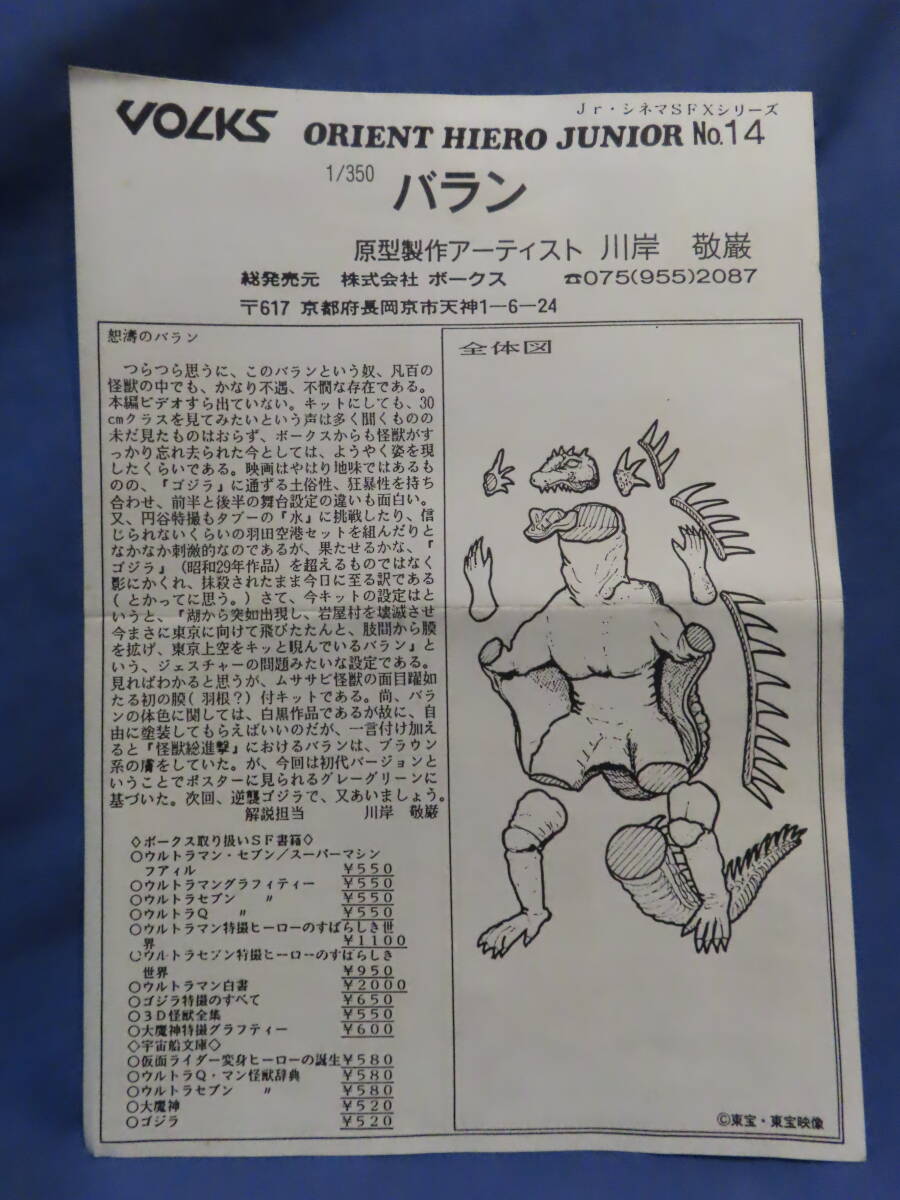 VOLKS
Jr・シネマSFXシリーズ
ORIENT HIERO JUNIOR No.14
1/350 バラン
原型製作アーティスト 川岸 敬厳
総発売元 株式会社 ボークス ☎075(955)2087
〒617 京都府長岡京市天神1−6−24
恕濤のバラン
つらつら思うに、このバランという奴、凡百の
怪獣の中でも、かなり不遇、不憫な存在である。
本編ビデオすら出ていない。キットにしても、30
cmクラスを見てみたいという声は多く聞くものの
未だ見たものはおらず、ボークスからも怪獣がす
っかり忘れ去られた今としては、ようやく姿を現
したくらいである。映画はやはり地味ではあるも
のの、『ゴジラ』に通ずる土俗性、狂暴性を持ち
合わせ、前半と後半の舞台設定の違いも面白い。
又、円谷特撮もタブーの『水』に挑戦したり、信
じられないくらいの羽田空港セットを組んだりと
なかなか刺激的なのであるが、果たせるかな、『
ゴジラ』(昭和29年作品)を超えるものではなく
影にかくれ、抹殺されたまま今日に至る訳である
(とかってに思う。)さて、今キットの設定はと
いうと、『湖から突如出現し、岩屋村を壊滅させ
今まさに東京に向けて飛びたたんと、肢間から膜
を拡げ、東京上空をキッと睨んでいるバラン』と
いう、ジェスチャーの問題みたいな設定である。
見ればわかると思うが、ムササビ怪獣の面目躍如
たる初の膜(羽根?)付キットである。尚、バラ
ンの体色に関しては、白黒作品であるが故に、自
由に塗装してもらえばいいのだが、一言付け加え
ると『怪獣総進撃』におけるバランは、ブラウン
系の膚をしていた。が、今回は初代バージョンと
いうことでポスターに見られるグレーグリーンに
基づいた。次回、逆襲ゴジラで、又あいましょう。
解説担当 川岸 敬厳
◇ボークス取り扱いSF書籍◇
○ウルトラマン・セブン/スーパーマシン
フアィル ¥550
○ウルトラマングラフィティー ¥550
○ウルトラセブン 〃 ¥550
○ウルトラQ 〃 ¥550
○ウルトラマン特撮ヒーローのすばらしき世
界 ¥1100
○ウルトラセブン特撮ヒーローのすばらしき
世界 ¥950
○ウルトラマン白書 ¥2000
○ゴジラ特撮のすべて ¥650
○3D怪獣全集 ¥550
○大魔神特撮グラフティー ¥600
◇宇宙船文庫◇
○仮面ライダー変身ヒーローの誕生¥580
○ウルトラQ・マン怪獣辞典 ¥580
○ウルトラセブン 〃 ¥580
○大魔神 ¥520
○ゴジラ ¥520
全体図
©東宝・東宝映像